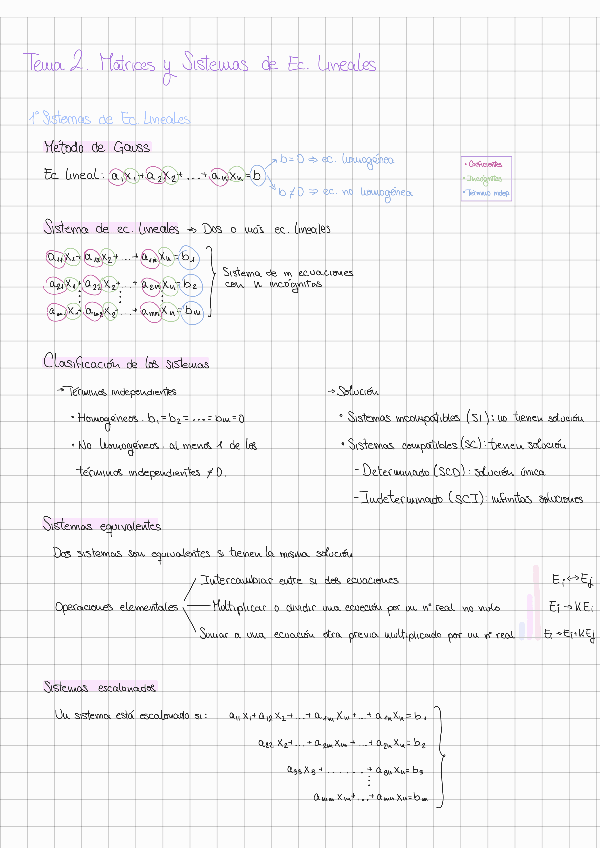 Tema 2. Matrices y Sistemas de Ec. Lineales
1º Sistemas de Ec Lineales
Método de Gauss
Ec lineal: a₁x₁+a₂x₂+...+aₙxₙ=b
b=0 ⇒ ec. homogénea
b≠0 ⇒ ec. no homogénea
• Coeficientes
• Incógnitas
• Término indep
Sistema de ec. lineales → Dos o más ec. lineales
a₁₁x₁+a₁₂x₂+...+a₁ₙxₙ=b₁
a₂₁x₁+a₂₂x₂+...+a₂ₙxₙ=b₂
aₘ₁x₁+aₘ₂x₂+...+aₘₙxₙ=bₘ
Sistema de m ecuaciones
con n incógnitas
Clasificación de los sistemas
→ Términos independientes
• Homogéneos. b₁=b₂=...=bₘ=0
• No homogéneos. al menos 1 de los
términos independientes ≠0.
→ Solución
• Sistemas incompatibles (SI): no tienen solución
• Sistemas compatibles (SC): tienen solución
- Determinado (SCD): solución única
- Indeterminado (SCI): infinitas soluciones
Sistemas equivalentes
Dos sistemas son equivalentes si tienen la misma solución
Operaciones elementales
Intercambiar entre si dos ecuaciones Eᵢ↔Eⱼ
Multiplicar o dividir una ecuación por un nº real no nulo Eᵢ→KEᵢ
Sumar a una ecuación otra previa multiplicado por un nº real Eᵢ→Eᵢ+KEⱼ
Sistemas escalonados
Un sistema está escalonado si: a₁₁x₁+a₁₂x₂+...+a₁ₘxₘ+...+a₁ₙxₙ=b₁
a₂₂x₂+...+a₂ₘxₘ+...+a₂ₙxₙ=b₂
a₃₃x₃+.......+a₃ₙxₙ=b₃
aₘₘxₘ+...+aₘₙxₙ=bₘ